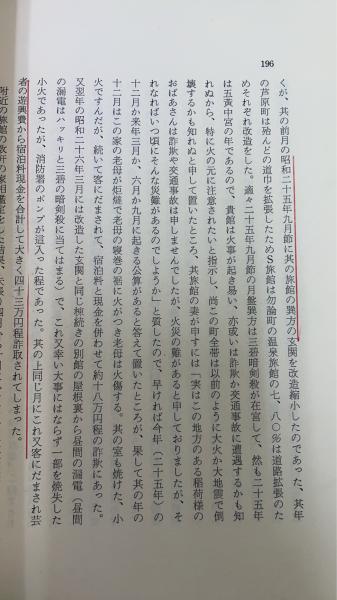 196
くが、其の前月の昭和二十五年九月節に其の旅館の巽方の玄関を改造縮小したのであった、其年
の芦原町は殆んどの道巾を拡張したためS旅館は勿論町の温泉旅館の七、八〇％は道路拡張のた
めそれぞれ改造をした。適々二十五年九月節の月盤巽方は三碧暗剣殺が在宮して、然も二十五年
は五黄中宮の年であるので、貴館は火事が起き易い、亦或いは詐欺か交通事故に遭遇するかも知
れぬから、特に火の元に注意されたいと指示し、尚この町全帯は以前のように大火か大地震で倒
壊するかも知れぬと申して置いたところ、其旅館の妻が申すには「実はこの地方のある稲荷様の
おばあさんは詐欺や交通事故は申しませんでしたが、火災の難があると申しておりましたが、そ
れなればいつ頃にそんな災難があるのでしょうか」と質したので、早ければ今年（二十五年）の
十二月か来年三月か、六月か九月に起きる公算があると答えて置いたところが、果して其の年の
十二月はこの家の老母が炬燵で老母の寝巻の裾に火がつき老母は火傷する。其の室も焼けた、小
火ですんだが、続いて客にだまされて、宿泊料と現金を併わせて約十八万円程の詐欺にあった。
又翌年の昭和二十六年三月には改造した玄関と同じ棟続きの別館の屋根裏から昼間の漏電（昼間
の漏電はハッキリと三碧の暗剣殺に当てはまる）で、これ又幸い大事にはならず一部を焼失した
小火であったが、消防署のポンプが這入った程であった。其の上同じ月にこれ又客にだまされ芸
者の遊興費から宿泊料現金を合計して大きく四十三万円程詐取されてしまった。
附近の旅館の改造の家相鑑定をした結果、